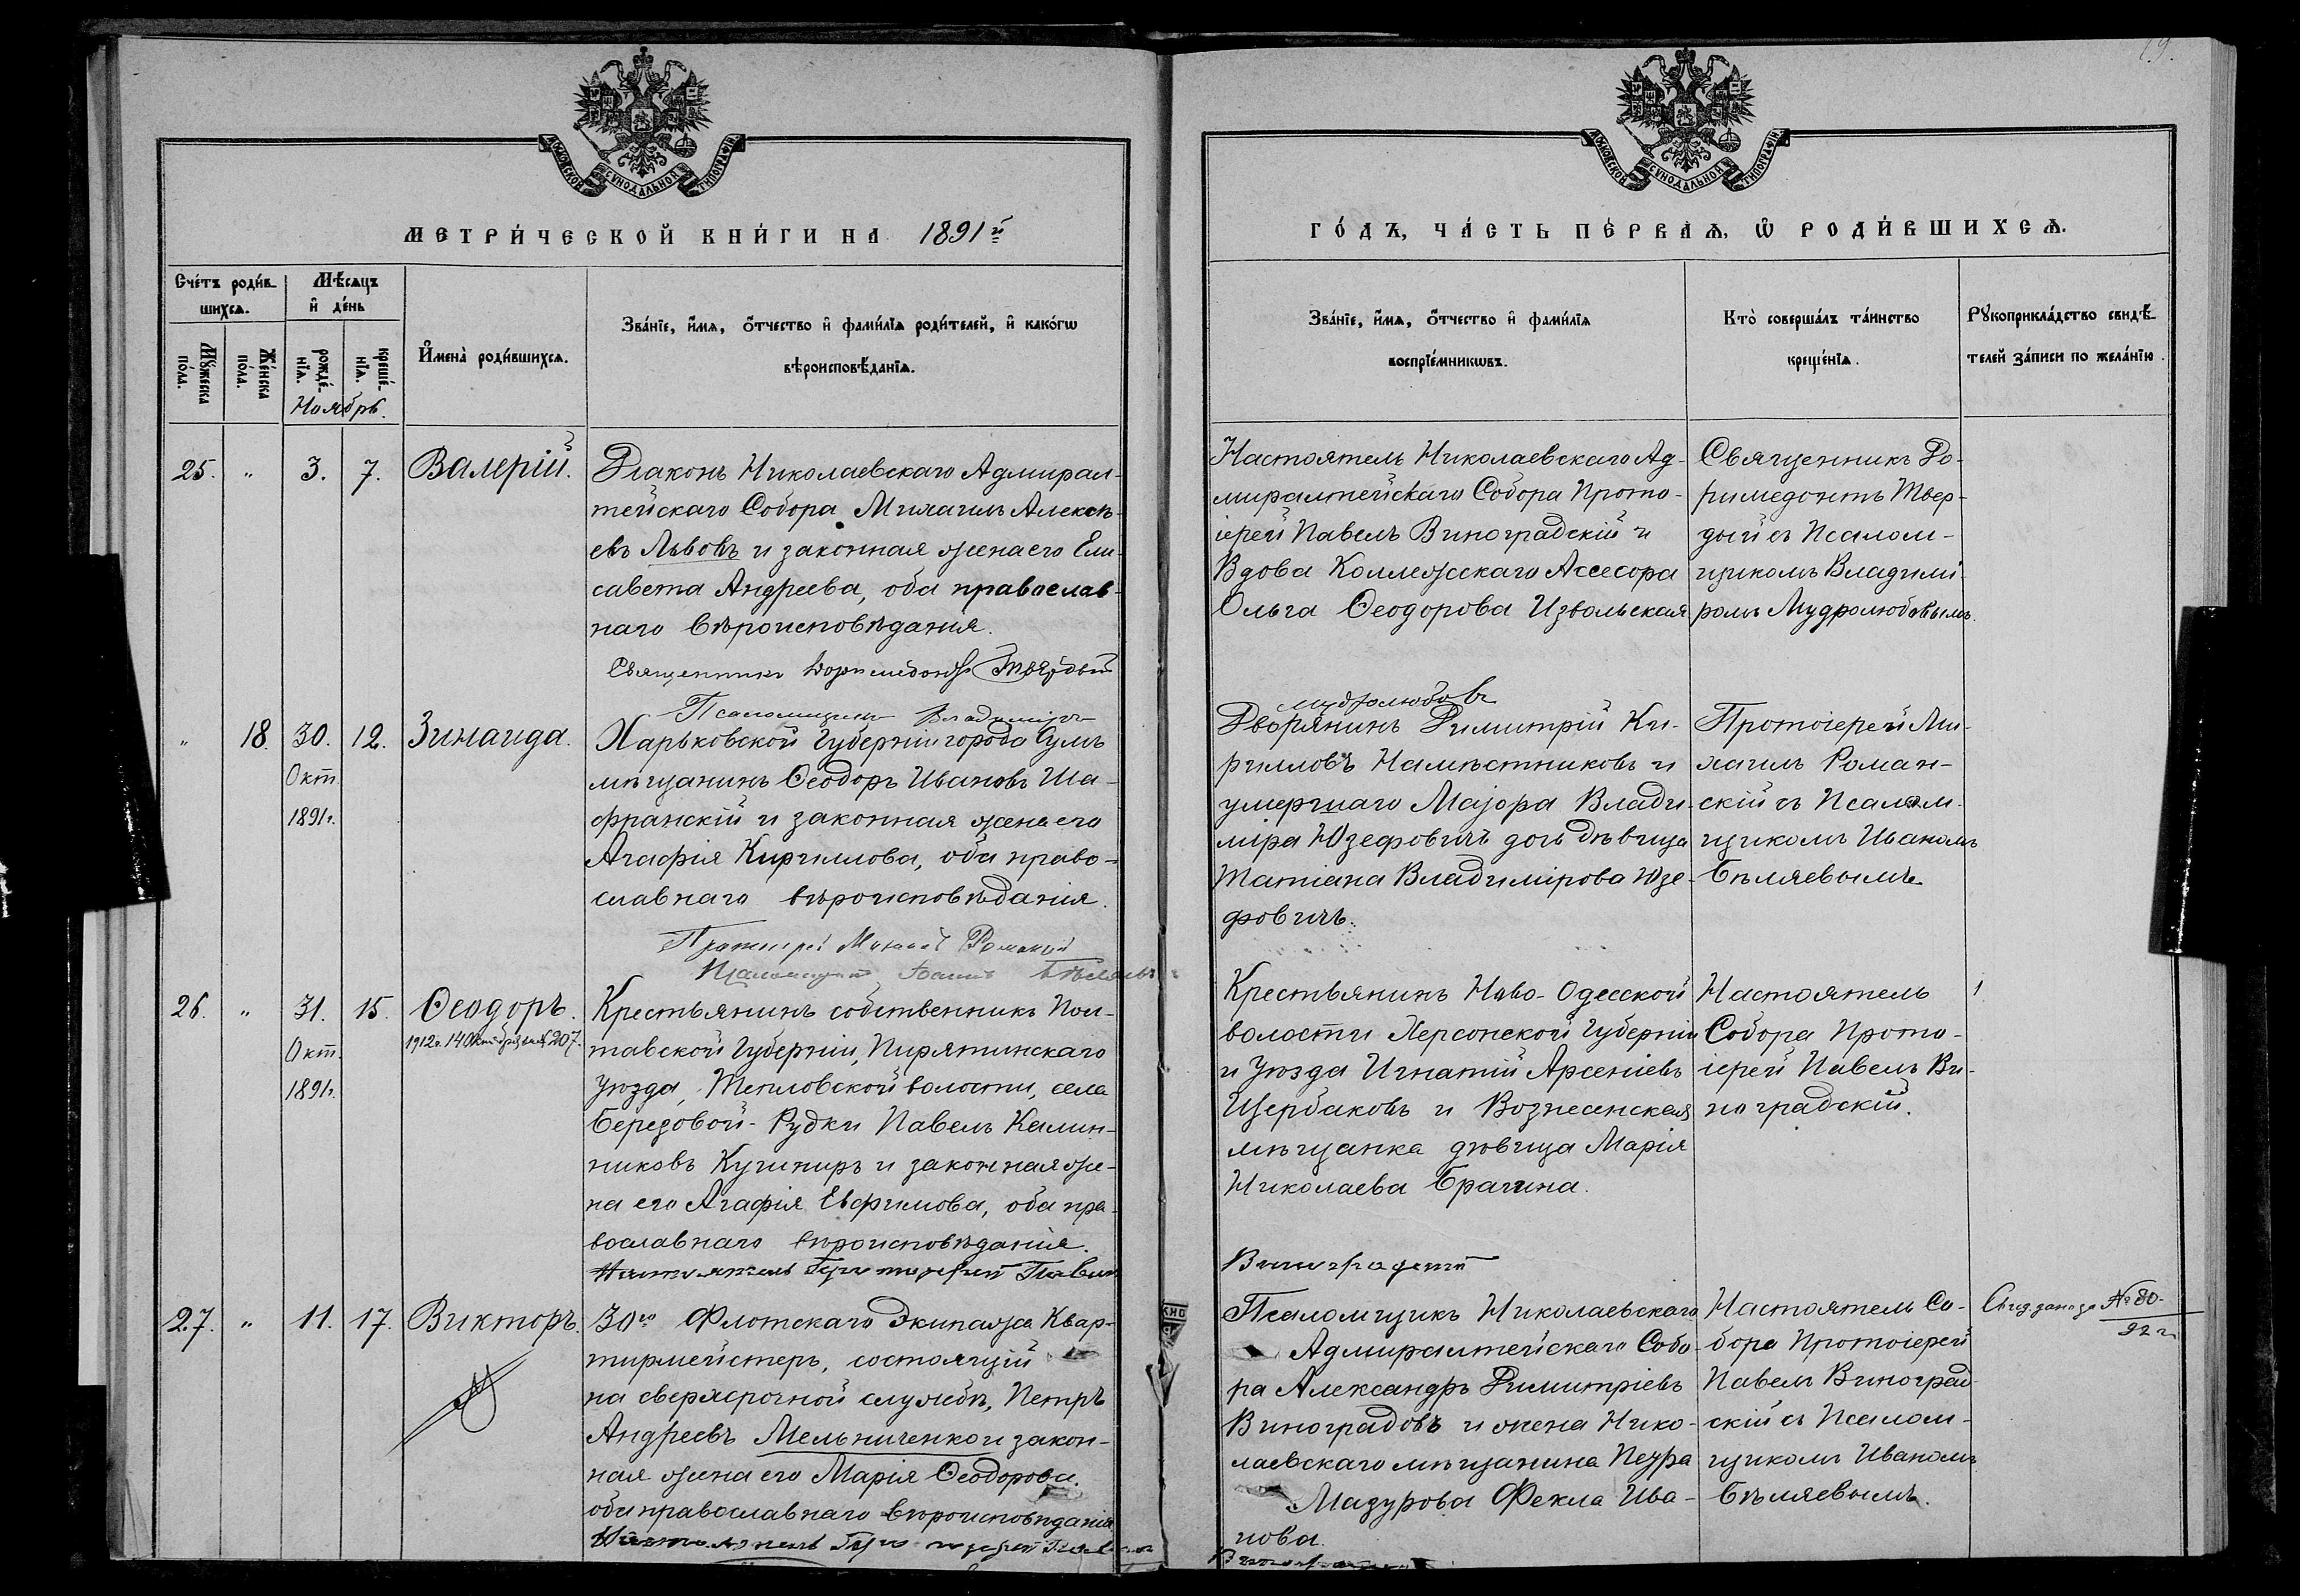 19.
МОСКОВСКОЙ СѴНОДАЛЬНОЙ ТИПОГРАФІИ
МОСКОВСКОЙ СѴНОДАЛЬНОЙ ТИПОГРАФІИ
МЕТРИ́ЧЕСКОЙ КНИ́ГИ НА 1891й
ГО́ДЪ, ЧА́СТЬ ПЕ́РВАѦ, Ѿ РОДИ́ВШИХСѦ.
Сче́тъ роди́в-
шихсѧ.
Мꙋ́жеска
по́ла.
Же́нска
по́ла.
Мѣ́сѧцъ
и҆ де́нь
рожде́-
нїѧ.
креще́-
нїѧ.
Ноябрь.
И҆мена̀ роди́вшихсѧ.
Зва́нїе, и҆́мѧ, о҆́тчество и҆ фами́лїѧ роди́телей, и҆ како́гѡ
вѣроисповѣ́данїѧ.
Зва́нїе, и҆́мѧ, о҆́тчество и҆ фами́лїѧ
воспрїе́мникѡвъ.
Кто̀ соверша́лъ та́инство
креще́нїѧ.
Рꙋкоприкла́дство свидѣ́-
телей за́писи по жела́нїю.
25. " 3. 7. Валерій.
Діаконъ Николаевскаго Адмирал-
тейскаго Собора Михаилъ Алексѣ-
евъ Львовъ и законная жена его Ели-
савета Андреева, оба православ-
наго вѣроисповѣданія.
Священникъ Доримедонтъ Твердый
Псаломщикъ Владиміръ
Мудролюбовъ
Настоятель Николаевскаго Ад-
миралтейскаго Собора Прото-
іерей Павелъ Виноградскій и
Вдова Коллежскаго Ассесора
Ольга Ѳеодорова Извольская
Священникъ До-
римедонтъ Твер-
дый съ Псалом-
щикомъ Владимі-
ромъ Мудролюбовымъ.
" 18. 30. 12. Зинаида.
Окт.
1891г.
Харьковской Губерніи города Сумъ
мѣщанинъ Ѳеодоръ Ивановъ Ша-
франскій и законная жена его
Агафія Кириллова, оба право-
славнаго вѣроисповѣданія.
Протоіерей Михаилъ Романскій
Псаломщикъ Іоаннъ Бѣляевъ
Дворянинъ Димитрій Ки-
рилловъ Намѣстниковъ и
умершаго Маіора Влади-
міра Юзефовичъ дочь дѣвица
Татіана Владимірова Юзе-
фовичъ.
Протоіерей Ми-
хаилъ Роман-
скій съ Псалом-
щикомъ Иваномъ
Бѣляевымъ
26. " 31. 15. Ѳеодоръ.
Окт.
1891г.
Крестьянинъ собственникъ Пол-
тавской Губерніи, Пирятинскаго
Уѣзда, Тепловской волости, села
Березовой-Рудки Павелъ Калин-
никовъ Кушниръ и законная же-
на его Агафія Евфимова, оба пра-
вославнаго вѣроисповѣданія.
Настоятель Протоіерей Павелъ
Виноградскій
Крестьянинъ Ново-Одесской
волости Херсонской Губерніи
и Уѣзда Игнатій Арсеніевъ
Щербаковъ и Вознесенская
мѣщанка дѣвица Марія
Николаева Брагина.
Настоятель
Собора Прото-
іерей Павелъ Ви-
ноградскій.
27. " 11. 17. Викторъ.
30го Флотскаго Экипажа Квар-
тирмейстеръ, состоящій
на сверхсрочной службѣ, Петръ
Андреевъ Мельниченко и закон-
ная жена его Марія Ѳеодорова.
оба православнаго вѣроисповѣданія
Настоятель Протоіерей Павелъ
Псаломщикъ Николаевскаго
Адмиралтейскаго Собо-
ра Александръ Димитріевъ
Виноградовъ и жена Нико-
лаевскаго мѣщанина Петра
Мазурова Фекла Ива-
нова.
Настоятель Со-
бора Протоіерей
Павелъ Виноград-
скій съ Псалом-
щикомъ Иваномъ
Бѣляевымъ.
№ 80.
92 г.